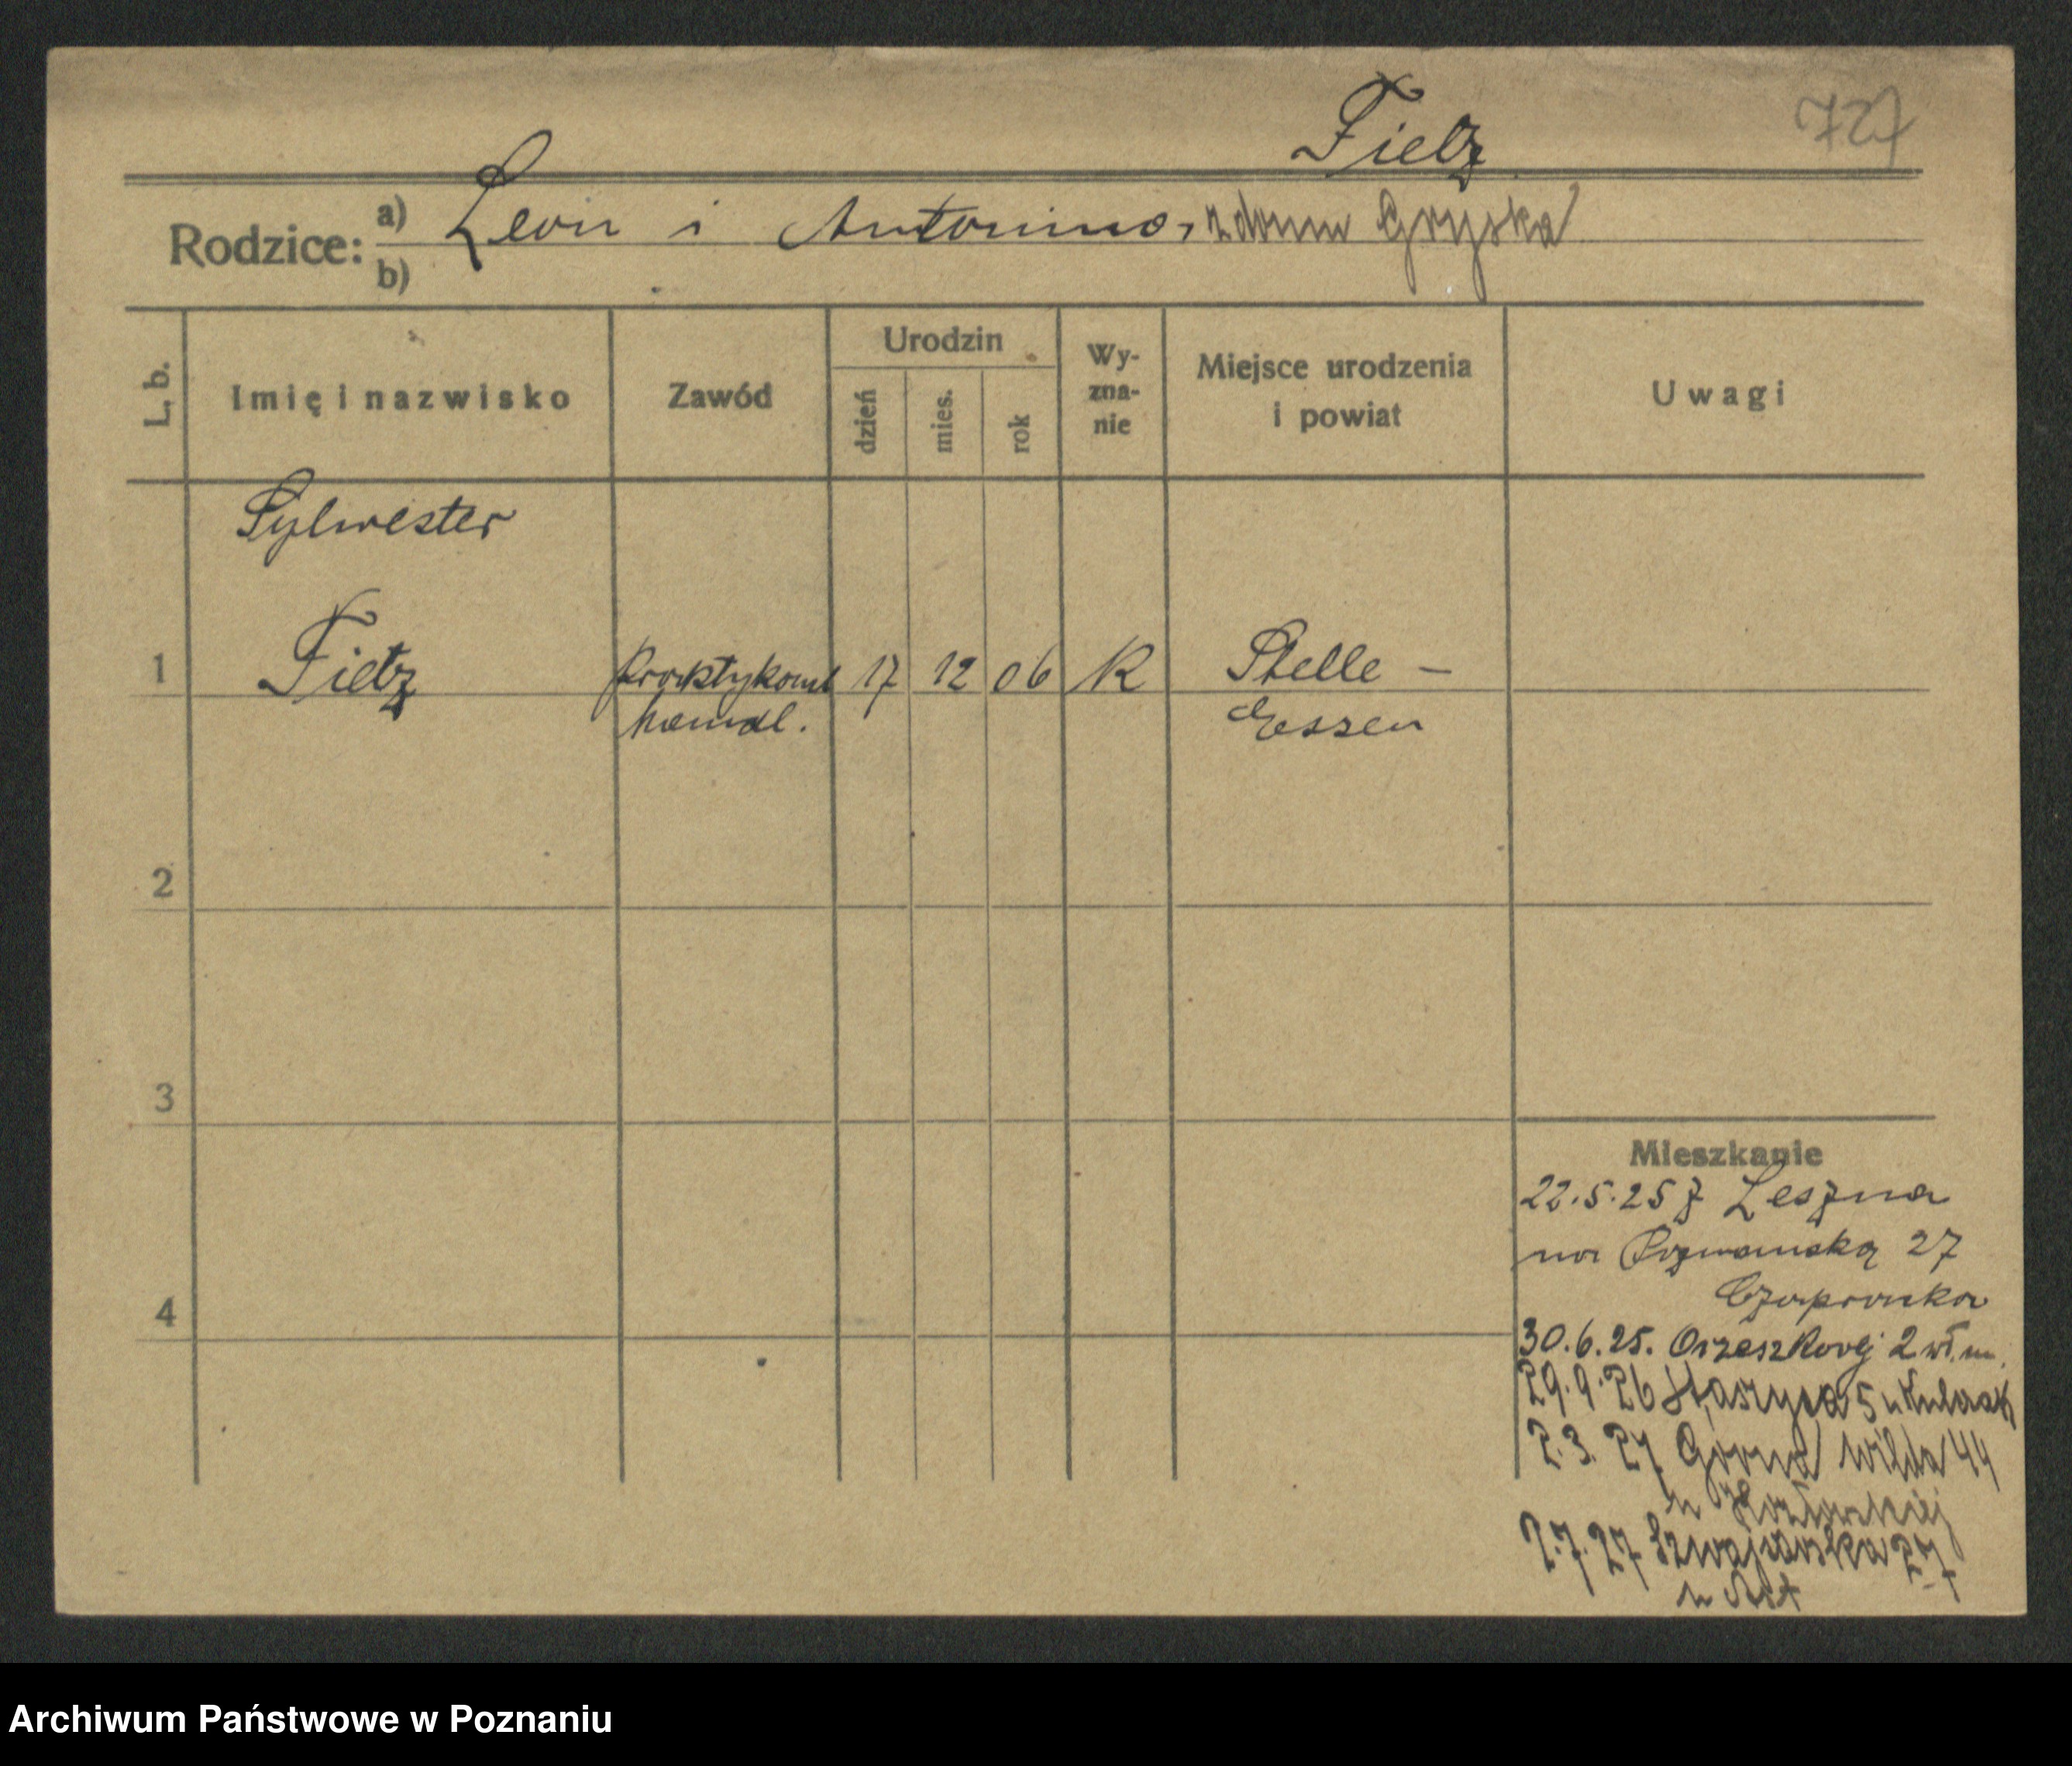 Fietz
727
Rodzice: a) Leon i Antonina, z domu Gryska
b)
L. b.
Imię i nazwisko
Zawód
Urodzin
dzień
mies.
rok
Wy-
zna-
nie
Miejsce urodzenia
i powiat
Uwagi
Sylwester
1 Fietz praktykant 17 12 06 K Stelle –
handl. Essen
2
3
4
Mieszkanie
22.5.25 z Leszna
na Poznańską 27
30.6.25. Orzeszkowej 2 wł. m.
29.9.26 Staszyca 5 u Kulczak
2.3.27 Górna Wilda 44
u Kozłowskiej
2.7.27 Szwajcarska 27
Archiwum Państwowe w Poznaniu